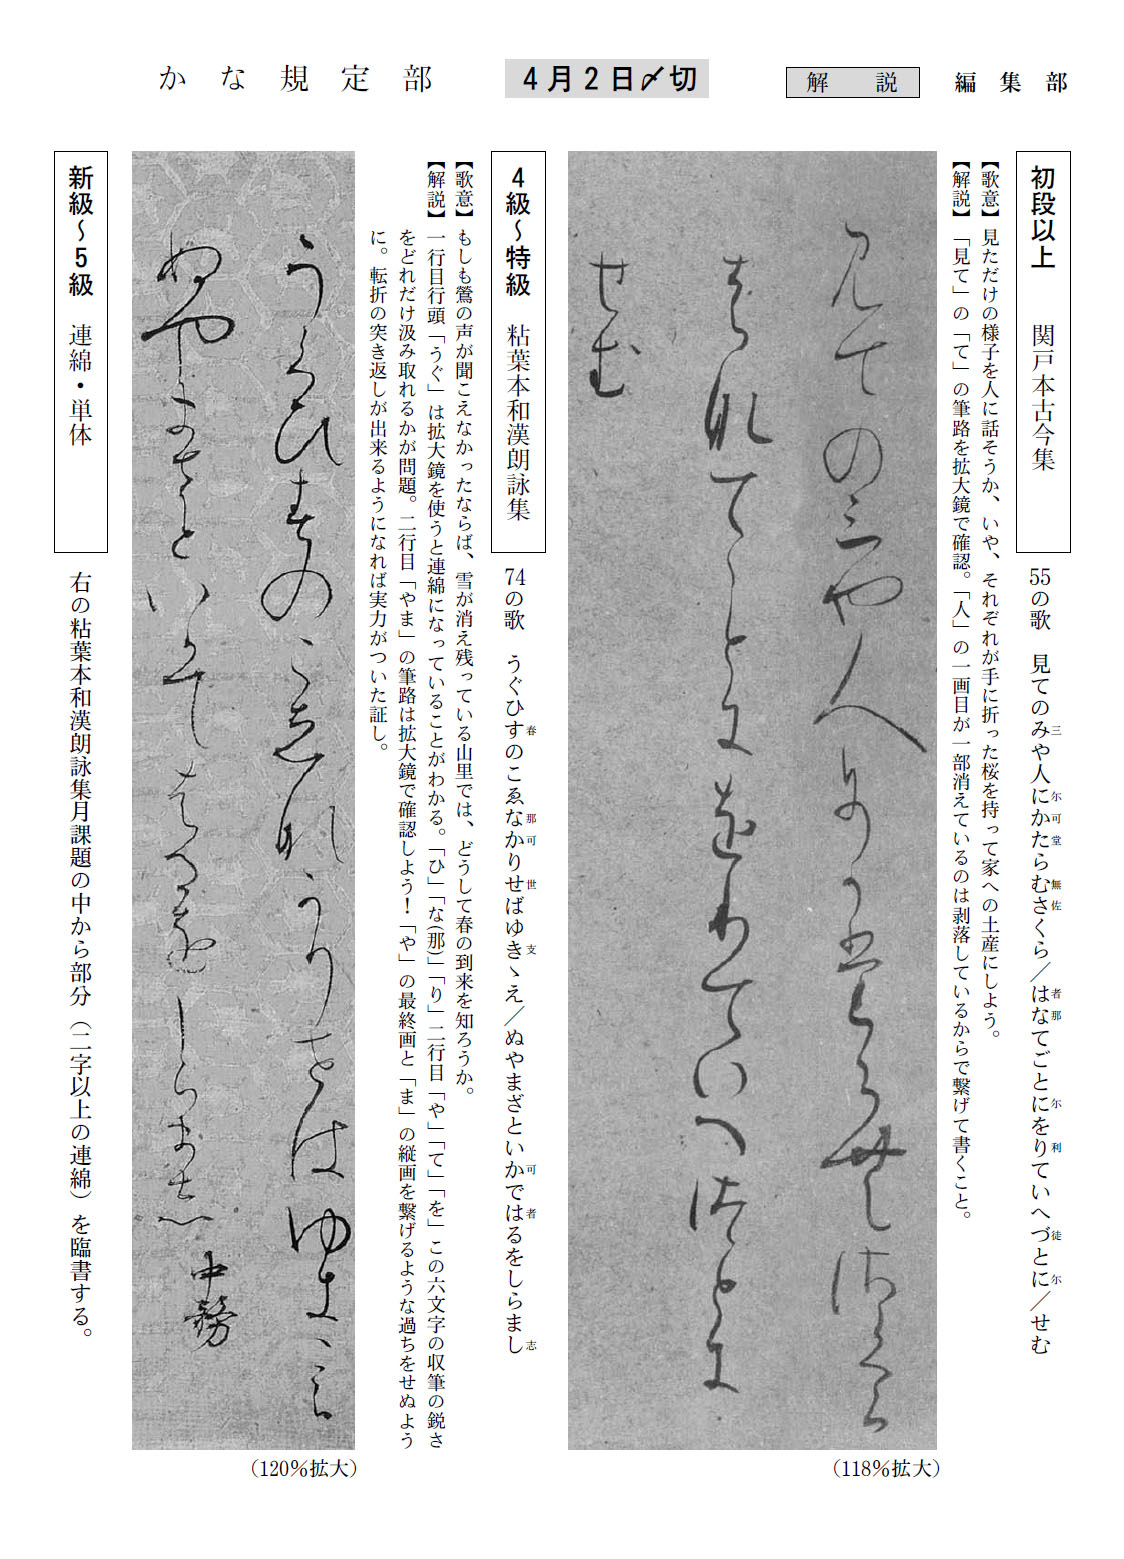 かな規定部
4月2日〆切
解説
編集部
初段以上 関戸本古今集
55の歌 見てのみや人にかたらむさくら／はなてごとにをりていへづとに／せむ
三 尓 可 堂 無 佐 者 那 尓 利 徒 尓
【歌意】見ただけの様子を人に話そうか、いや、それぞれが手に折った桜を持って家への土産にしよう。
【解説】「見て」の「て」の筆路を拡大鏡で確認。「人」の一画目が一部消えているのは剥落しているからで繋げて書くこと。
見てのみや人にかたらむさくら
はなてごとにをりていへづとに
せむ
(118％拡大)
4級〜特級 粘葉本和漢朗詠集
74の歌 うぐひすのこゑなかりせばゆきゝえ／ぬやまざといかではるをしらまし
春 那 可 世 支 可 者 志
【歌意】もしも鶯の声が聞こえなかったならば、雪が消え残っている山里では、どうして春の到来を知ろうか。
【解説】一行目行頭「うぐ」は拡大鏡を使うと連綿になっていることがわかる。「ひ」「な(那)」「り」二行目「や」「て」「を」この六文字の収筆の鋭さ
をどれだけ汲み取れるかが問題。二行目「やま」の筆路は拡大鏡で確認しよう！「や」の最終画と「ま」の縦画を繋げるような過ちをせぬよう
に。転折の突き返しが出来るようになれば実力がついた証し。
うくひすのこゑなかりせはゆきゝえ
ぬやまさといかてはるをしらまし 中務
(120％拡大)
新級〜5級 連綿・単体
右の粘葉本和漢朗詠集月課題の中から部分（二字以上の連綿）を臨書する。